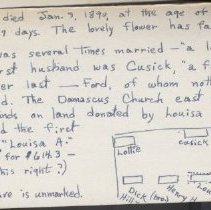 died Jan. 7, 1890, at the age of
9 days. The lovely flower has fa
was several times married – "a l
rst husband was Cusick, "a f
er last — Ford, of whom not
d. The Damascus Church east
nds on land donated by Louisa
d the first
"Louisa A."
for $614.3 –
his right?)
re is unmarked.
Lottie
Cusick
Dick (bro)
Hill
Henry H